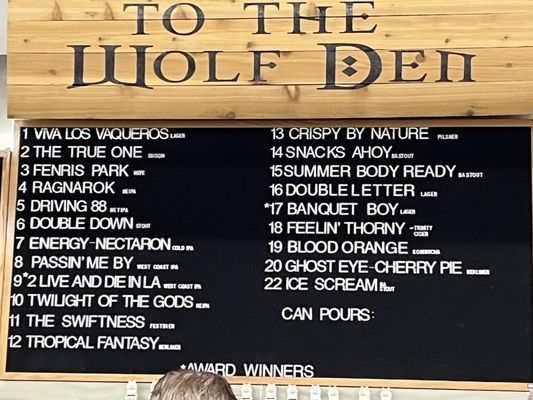 TO THE
WOLF DEN
1 VIVA LOS VAQUEROS LAGER
2 THE TRUE ONE SAISON
3 FENRIS PARK HEFE
4 RAGNAROK NEIPA
5 DRIVING 88 NE TIPA
6 DOUBLE DOWN STOUT
7 ENERGY-NECTARON COLD IPA
8 PASSIN' ME BY WEST COAST IPA
9 *2 LIVE AND DIE IN LA WEST COAST IPA
10 TWILIGHT OF THE GODS NEIPA
11 THE SWIFTNESS FESTBIER
12 TROPICAL FANTASY BERLINER
13 CRISPY BY NATURE PILSNER
14 SNACKS AHOY BA STOUT
15 SUMMER BODY READY BA STOUT
16 DOUBLE LETTER LAGER
*17 BANQUET BOY LAGER
18 FEELIN' THORNY TRINITY CIDER
19 BLOOD ORANGE KOMBUCHA
20 GHOST EYE-CHERRY PIE BERLINER
22 ICE SCREAM BA STOUT
CAN POURS:
*AWARD WINNERS